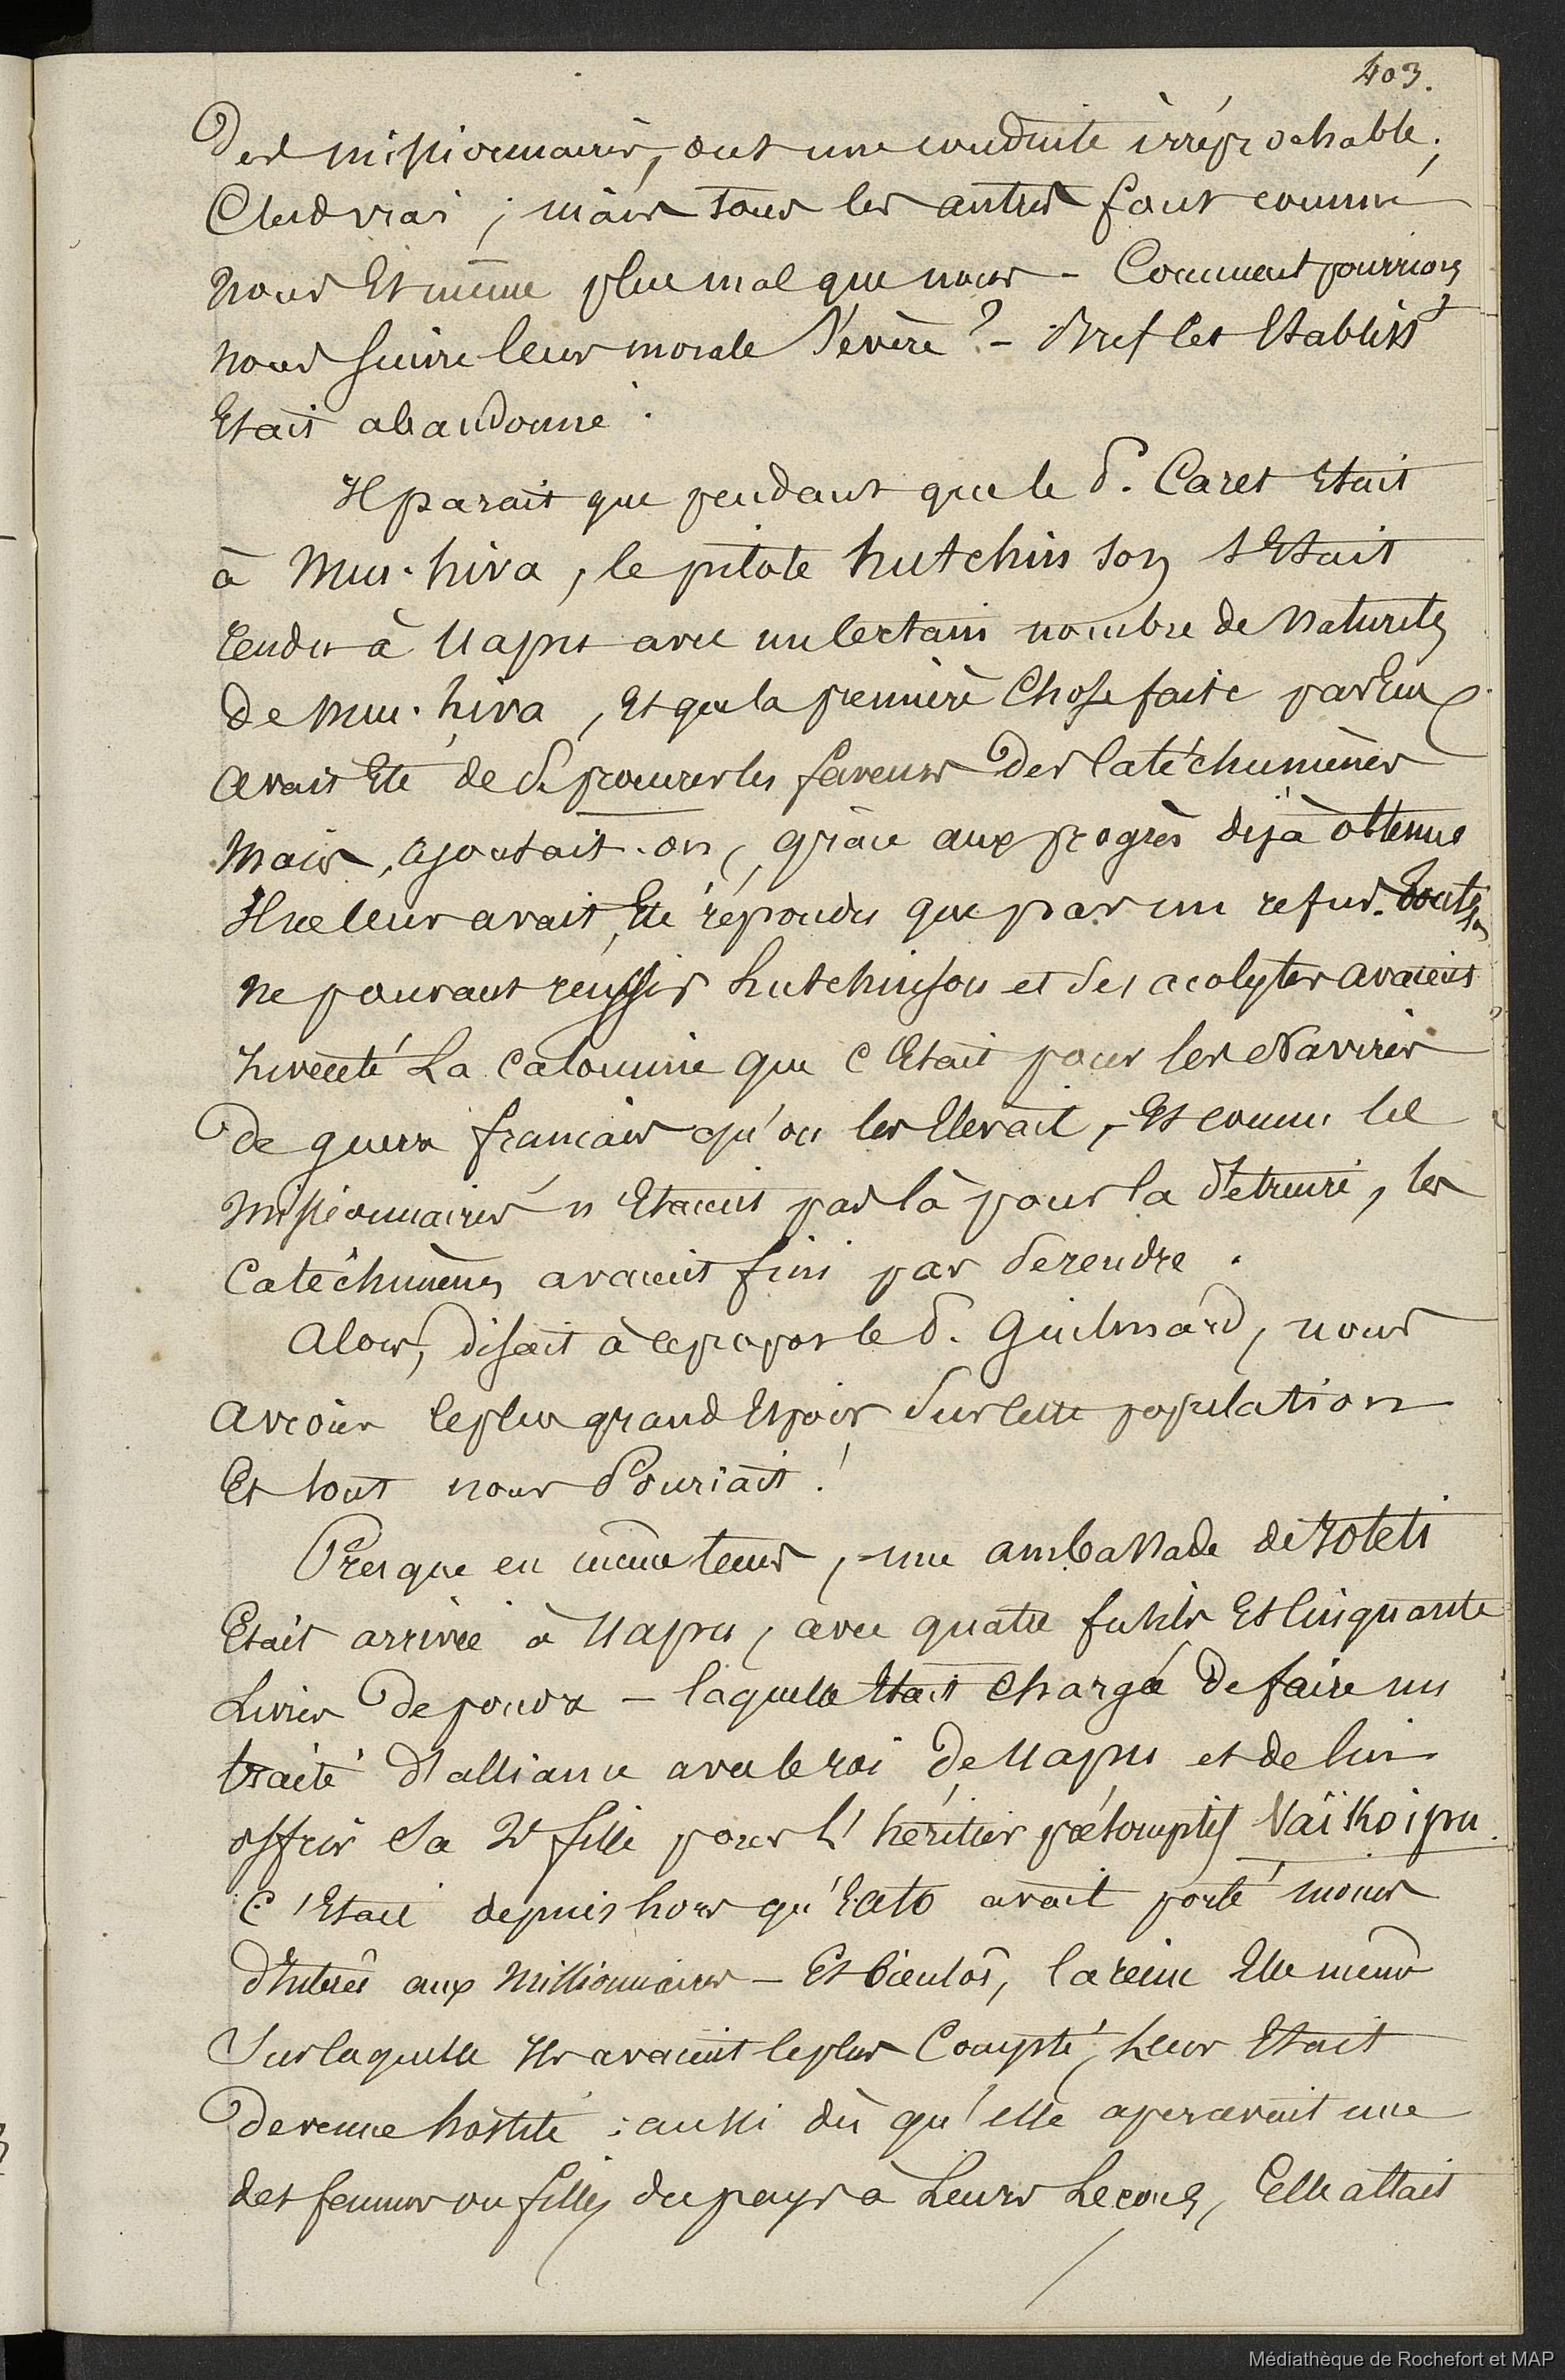 403.
des missionnaires, ont une conduite irréprochable;
C'est vrai; mais tous les autres font comme
nous Et même plus mal que nous - Comment pourrions
nous suivre leur morale sévère? - Bref les Etabliss^t
Etait abandonné.
Il parait que pendant que le P. Caret Etait
à Nuu-hiva, le pilote hutchinson s'Etait
rendu à Uapu avec un certain nombre de naturels
de Nuu-hiva, Et que la première chose faite par Eux
avait Eté de se procurer les faveurs des catéchumènes
Mais, ajoutait-on, grâce aux progrès déjà obtenus
Il ne leur avait Eté répondu que par un refus.
ne pouvant réussir hutchinson et ses acolytes avaient
Inventé La Calomnie que c'Etait pour les Navires
de guerre français qu'on les Elevait, - Et comme les
missionnaires n'Etaient pas là pour la détruire, les
Catéchumènes avaient fini par se rendre.
Alors, disait à ce propos le P. Guilmard, nous
avions le plus grand Espoir sur cette population
Et tout nous Souriait!
Presque en même tems, - une ambassade de Ioteti
Etait arrivée à Uapu, avec quatre fusils Et cinquante
Livres de poudre - laquelle Etait chargée de faire un
traité d'alliance avec le roi de Uapu et de lui
offrir sa 2e fille pour l'héritier présomptif Vaïkoipu.
C'Etait depuis hors qu'Eato avait porté moins
d'Intérêt aux Missionnaires - Et bientôt, la reine Elle même
Sur laquelle Ils avaient le plus Compté, leur Etait
devenue hostile: aussi dès qu'elle apercevait une
des femmes ou filles du pays à Leurs Leçons, Elle allait